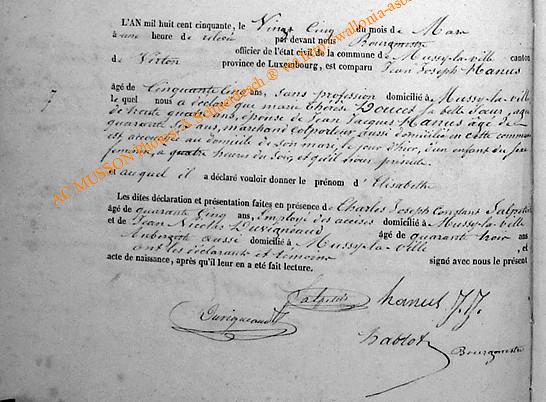 L'AN mil huit cent cinquante, le Vingt Cinq du mois de Mars
à une heure de relevée par devant nous Bourgmestre
officier de l'état civil de la commune de Mussy-la-ville canton
de Virton province de Luxembourg, est comparu Jean Joseph Hanus
7
âgé de Cinquante Cinq ans, Sans profession domicilié à Mussy-la-ville
Le quel nous a déclaré que marie thérèse Doucet sa belle Sœur, âgée
de trente quatre ans, épouse de Jean Jacques Hanus âgé de
quarante ans, marchand Colporteur, aussi domicilié en cette commune
est accouchée au domicile de Son mari, le jour d'hier, d'un enfant du sexe
feminin, à quatre heures du Soir, et qu'il nous présente.
et auquel il a déclaré vouloir donner le prénom d'Elisabeth
Les dites déclaration et présentation faites en présence de Charles Joseph Constant Salpetier
âgé de quarante Cinq ans, Employé des accises domicilié à Mussy-la-ville
et de Jean Nicolas Duvigneaud âgé de quarante trois ans
aussi domicilié à Mussy-la-ville, et
ont les déclarant et témoins signé avec nous le présent
acte de naissance, après qu'il leur en a été fait lecture.
hanus J.J.
Duvigneaud
hablot
Bourgmestre
AC MUSSON Photos